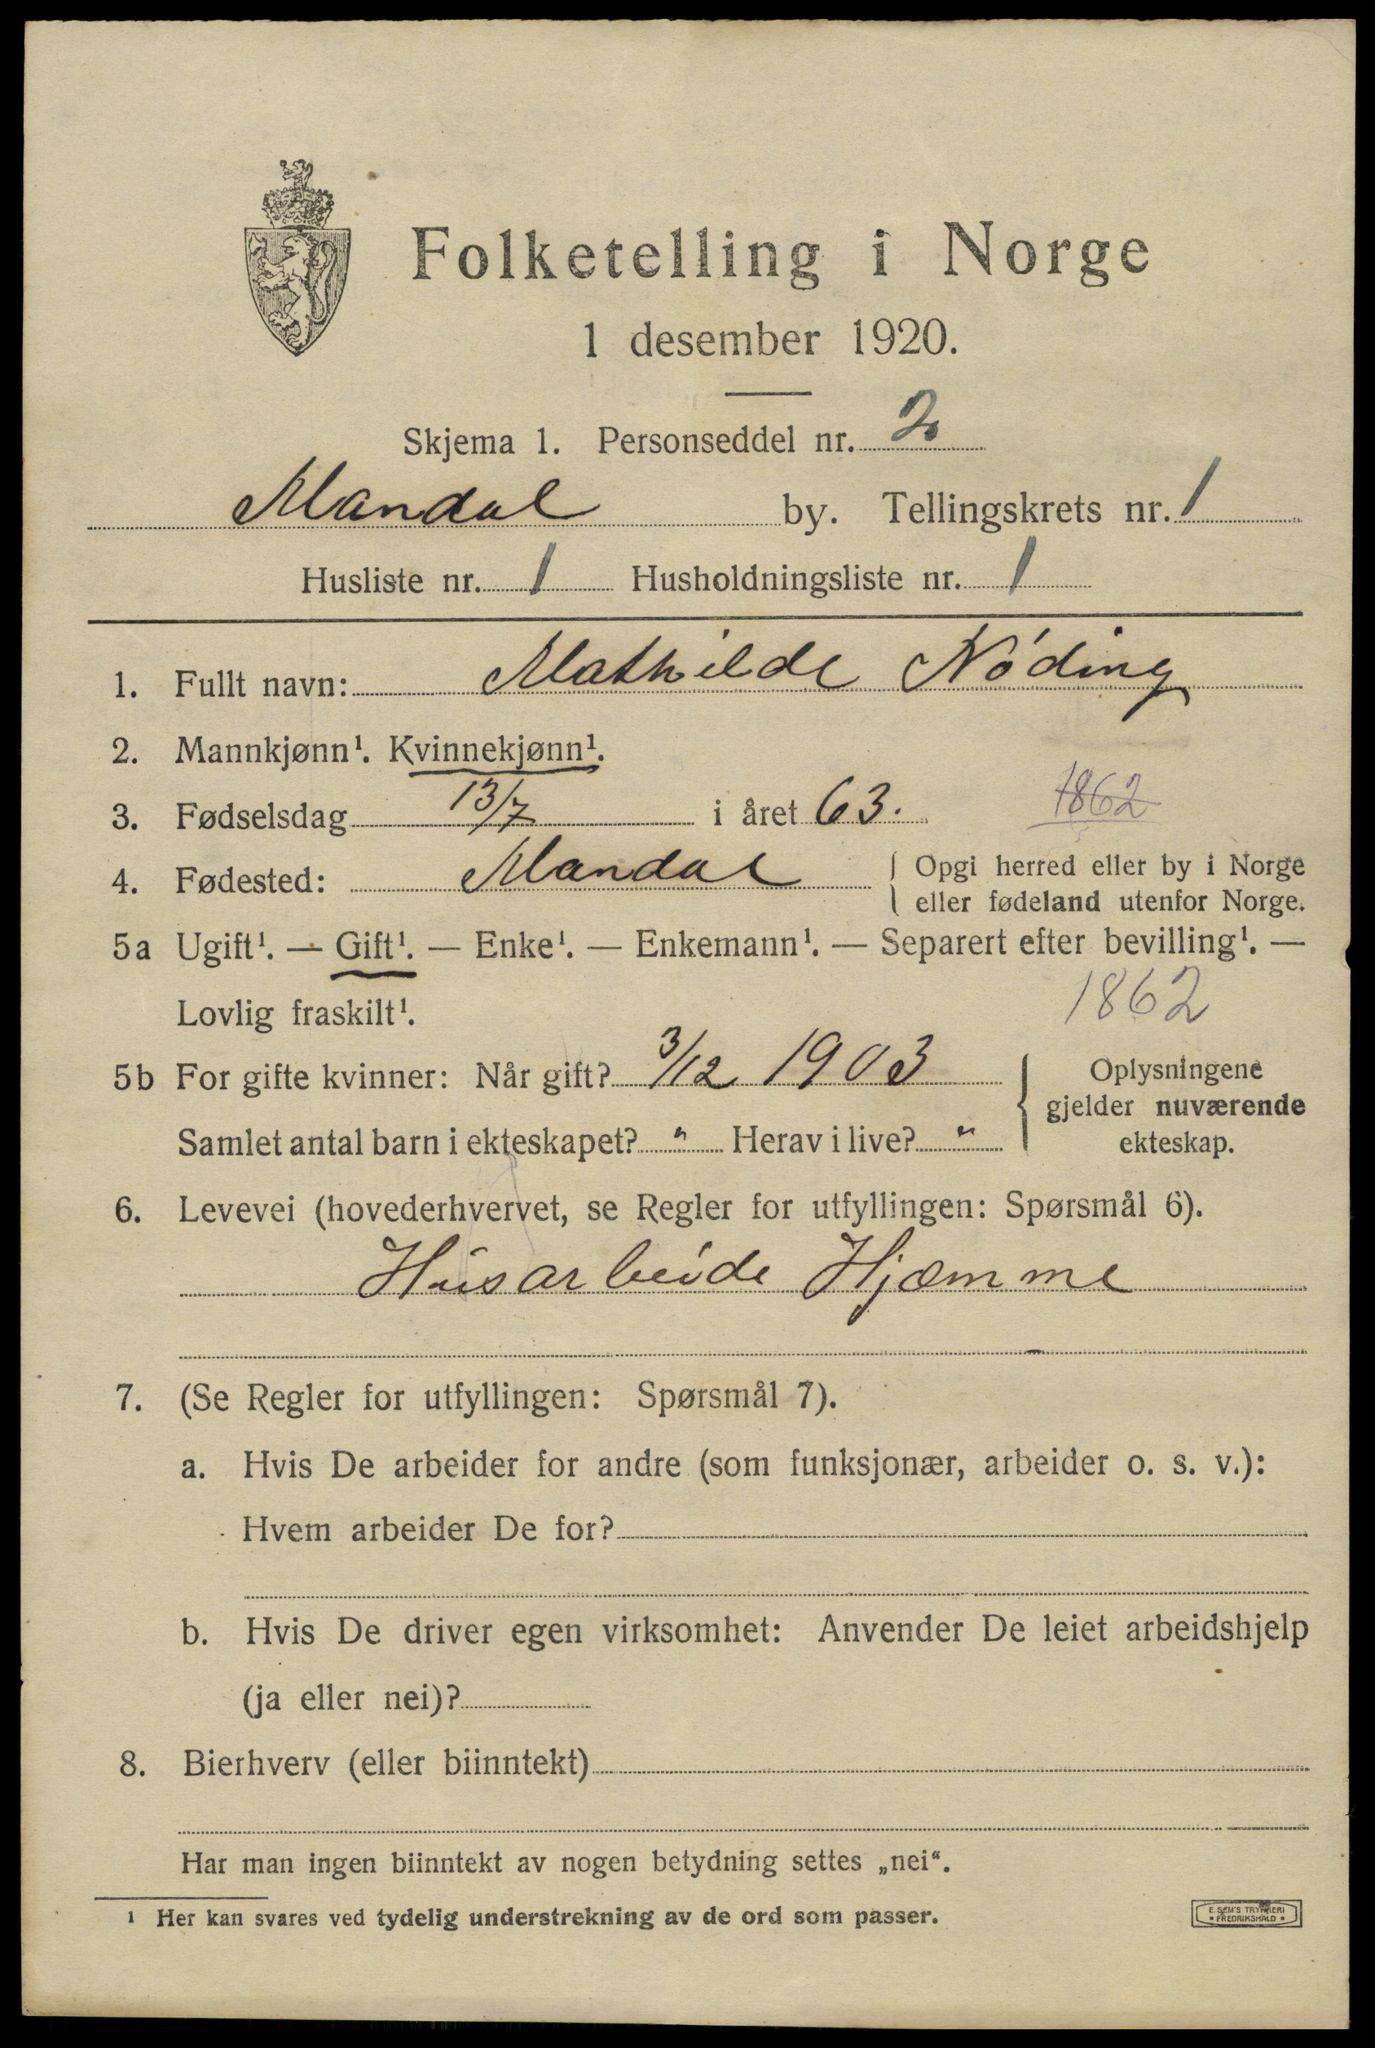 Folketelling i Norge
1 desember 1920.
Skjema 1. Personseddel nr. 2
Mandal by. Tellingskrets nr. 1
Husliste nr. 1 Husholdningsliste nr. 1
1. Fullt navn: Mathilde Nóding
2. Mannkjønn¹. Kvinnekjønn¹.
3. Fødselsdag 13/7 i året 63. 1862
4. Fødested: Mandal { Opgi herred eller by i Norge
eller fødeland utenfor Norge.
5a Ugift¹. — Gift¹. — Enke¹. — Enkemann¹. — Separert efter bevilling¹. —
Lovlig fraskilt¹. 1862
5b For gifte kvinner: Når gift? 3/12 1903 { Oplysningene
gjelder nuværende
Samlet antal barn i ekteskapet? " Herav i live? " ekteskap.
6. Levevei (hovederhvervet, se Regler for utfyllingen: Spørsmål 6).
Husarbeide Hjæmme
7. (Se Regler for utfyllingen: Spørsmål 7).
a. Hvis De arbeider for andre (som funksjonær, arbeider o. s. v.):
Hvem arbeider De for?
b. Hvis De driver egen virksomhet: Anvender De leiet arbeidshjelp
(ja eller nei)?
8. Bierhverv (eller biinntekt)
Har man ingen biinntekt av nogen betydning settes „nei“.
¹ Her kan svares ved tydelig understrekning av de ord som passer.
E. SEM'S TRYKKERI
* FREDRIKSHALD *